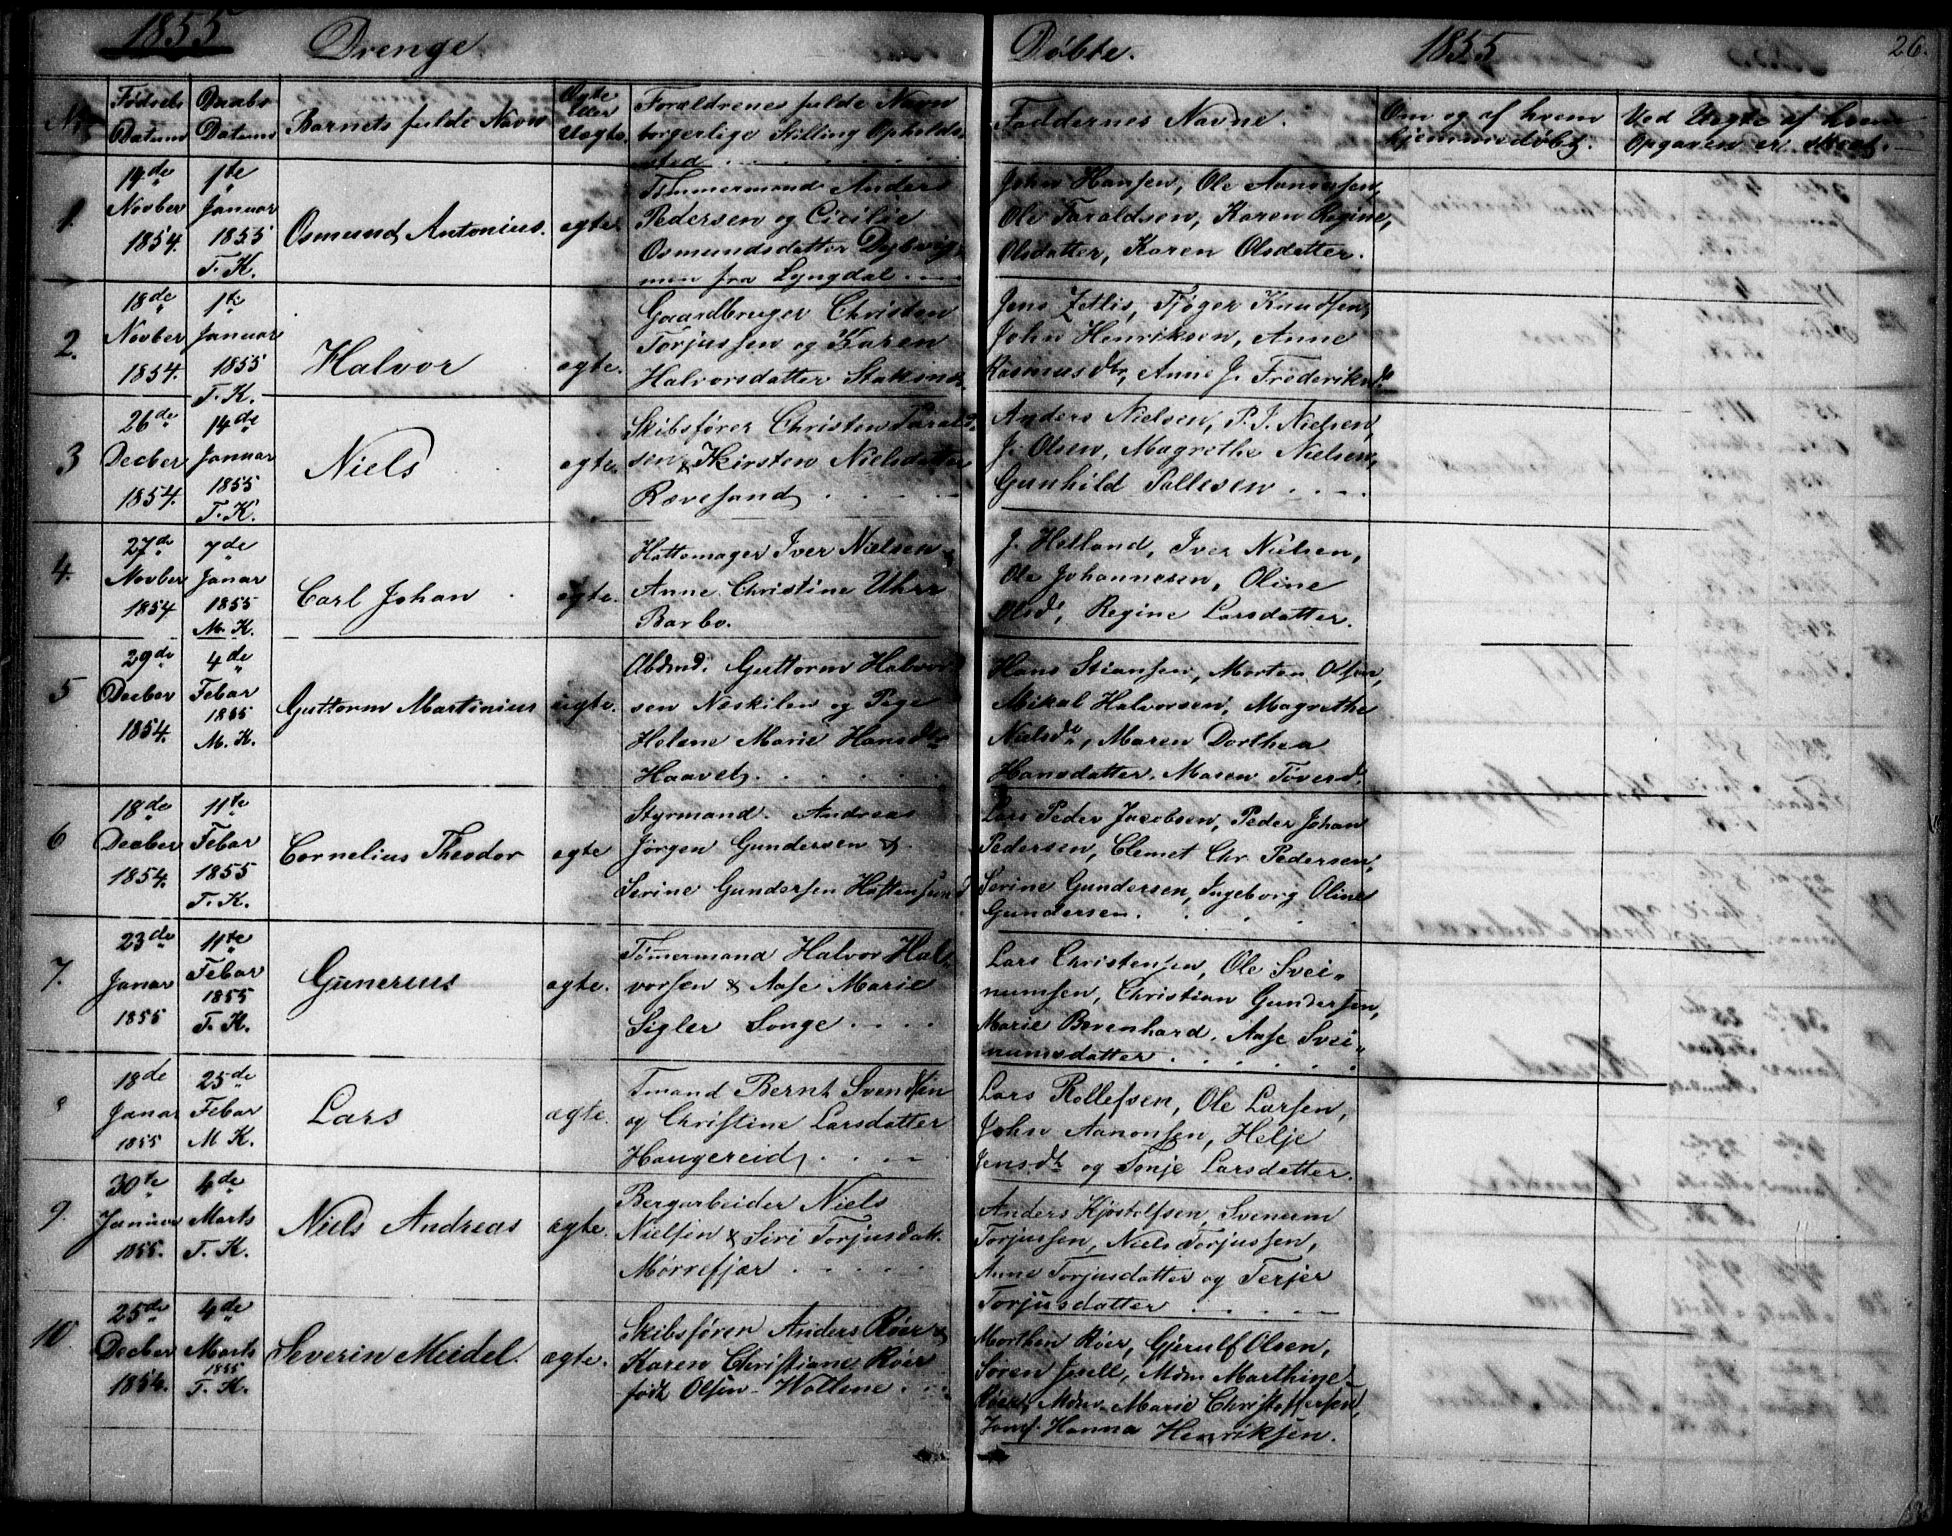 1855 Drenge. Døbte. 1855 26.
No Fødsels Datum Daabs Datum Barnets fulde Navn Ægte eller Uægte. Forældrenes fulde Navn
borgerlige Stilling Opholds
sted
Faddernes Navne. Om og af hvem
hjemmedøbt. Ved Uægte af hvem
Opgaven er skeet.
1. 14de Novber 1854. 1te Januar 1855 T. K. Osmund Antonius. ægte.
Tømmermand Anders
Pedersen og Cicilie
Osmundsdatter
fra Lyngdal
John Hansen, Ole Aanonsen,
Ole Taraldsen, Karen Regine
Olsdatter, Karen Olsdatter.
2. 18de Novber 1854. 1te Januar 1855 T. K. Halvor ægte.
Gaardbruger Christen
Torjussen og Karen
Halvorsdatter
Jens Zetlis, Tjøger Knudsen,
John Henriksen, Anne
Rasmusdtr, Anne J. Frederiksdr
3 26de Decber 1854. 14de Januar 1855 T. K. Niels ægte.
Skibsfører Christen Tarald
sen & Kirsten Nielsdatter
Rævesand
Anders Nielsen, P. J. Nielsen,
J. Olsen, Magrethe Nielsen,
Gunhild Pallesen
4. 27de Novber 1854 7de Janar 1855 M. K. Carl Johan ægte.
Hattemager Iver Nielsen
Anne Christine Uhrr
Barbo.
J. Helland, Iver Nielsen,
Ole Johannesen, Oline
Olsdr, Regine Larsdatter.
5 29de Decber 1854. 4de Febar 1855 M. K. Guttorm Martinius uægte.
Guttorm Halvor
sen Neskilen og Pige
Helene Marie Hansdtr
Haavet
Hans Stiansen, Morten Olsen,
Mikal Halvorsen, Magrethe
Nielsdr, Maren Dorthea
Hansdatter. Maren Tøversdr
6 18de Decber 1854. 11te Febar 1855 T. K. Cornelius Theodor ægte
Styrmand. Andreas
Jørgen Gundersen &
Serine Gundersen Hattensund
Lars Peder Jacobsen, Peder Johan
Pedersen, Clemet Chr. Pedersen,
Serine Gundersen, Ingeborg Oline
Gundersen.
7. 23de Janar 1855 11te Febar 1855 T. K. Gunerius ægte.
Tømermand Halvor Hal-
vorsen & Aase Marie
Sigler Songe
Lars Christensen, Ole Svei-
numsen, Christian Gundersen,
Marie Berenhard. Aase Svei-
numsdatter
8 18de Janar 1855 25de Febar M K. Lars ægte.
Tmand Bernt Svendsen
og Christine Larsdatter
Haugereid
Lars Rollefsen, Ole Larsen,
John Aanonsen, Helje
Jensdtr og Tonje Larsdatter.
9. 30te Januar 1855. 4de Marts T. K. Niels Andreas ægte.
Bergarbeider Niels
Nielsen & Siri Torjusdatt.
Mørrefjær
Anders Kjøstelfsen, Svenum
Torjussen, Niels Torjussen,
Anne Torjusdatter og Terjer
Torjusdatter
10. 25de Decber 1854. 4de Marts 1855 T. K. Severin Meidel. ægte.
Skibsfører Anders Røer &
Karen Christiane Røer
født Olsen Wollene.
Morthen Røer, Gjerulf Olsen,
Søren Jsell, Mdm Marthine
Røer, Mdm. Marie Christoffersen,
Jomf. Hanna Henriksen.